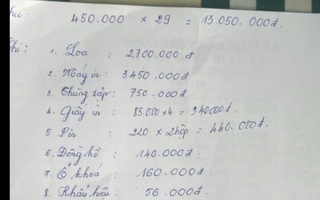 Thu: 450.000 × 29 = 13.050.000đ.
Chi: 1. Loa : 2.700.000 đ
2. Máy in : 3450.000đ
3. Thùng rác : 750.000đ
4. Giấy in : 85.000 x 4 = 340000đ
5 Pin : 220 x 2hộp = 440.000đ.
6. Đồng hồ : 140.000đ.
7. Ổ khoá : 160.000đ.
8. Khẩu hiệu : 56.000đ.